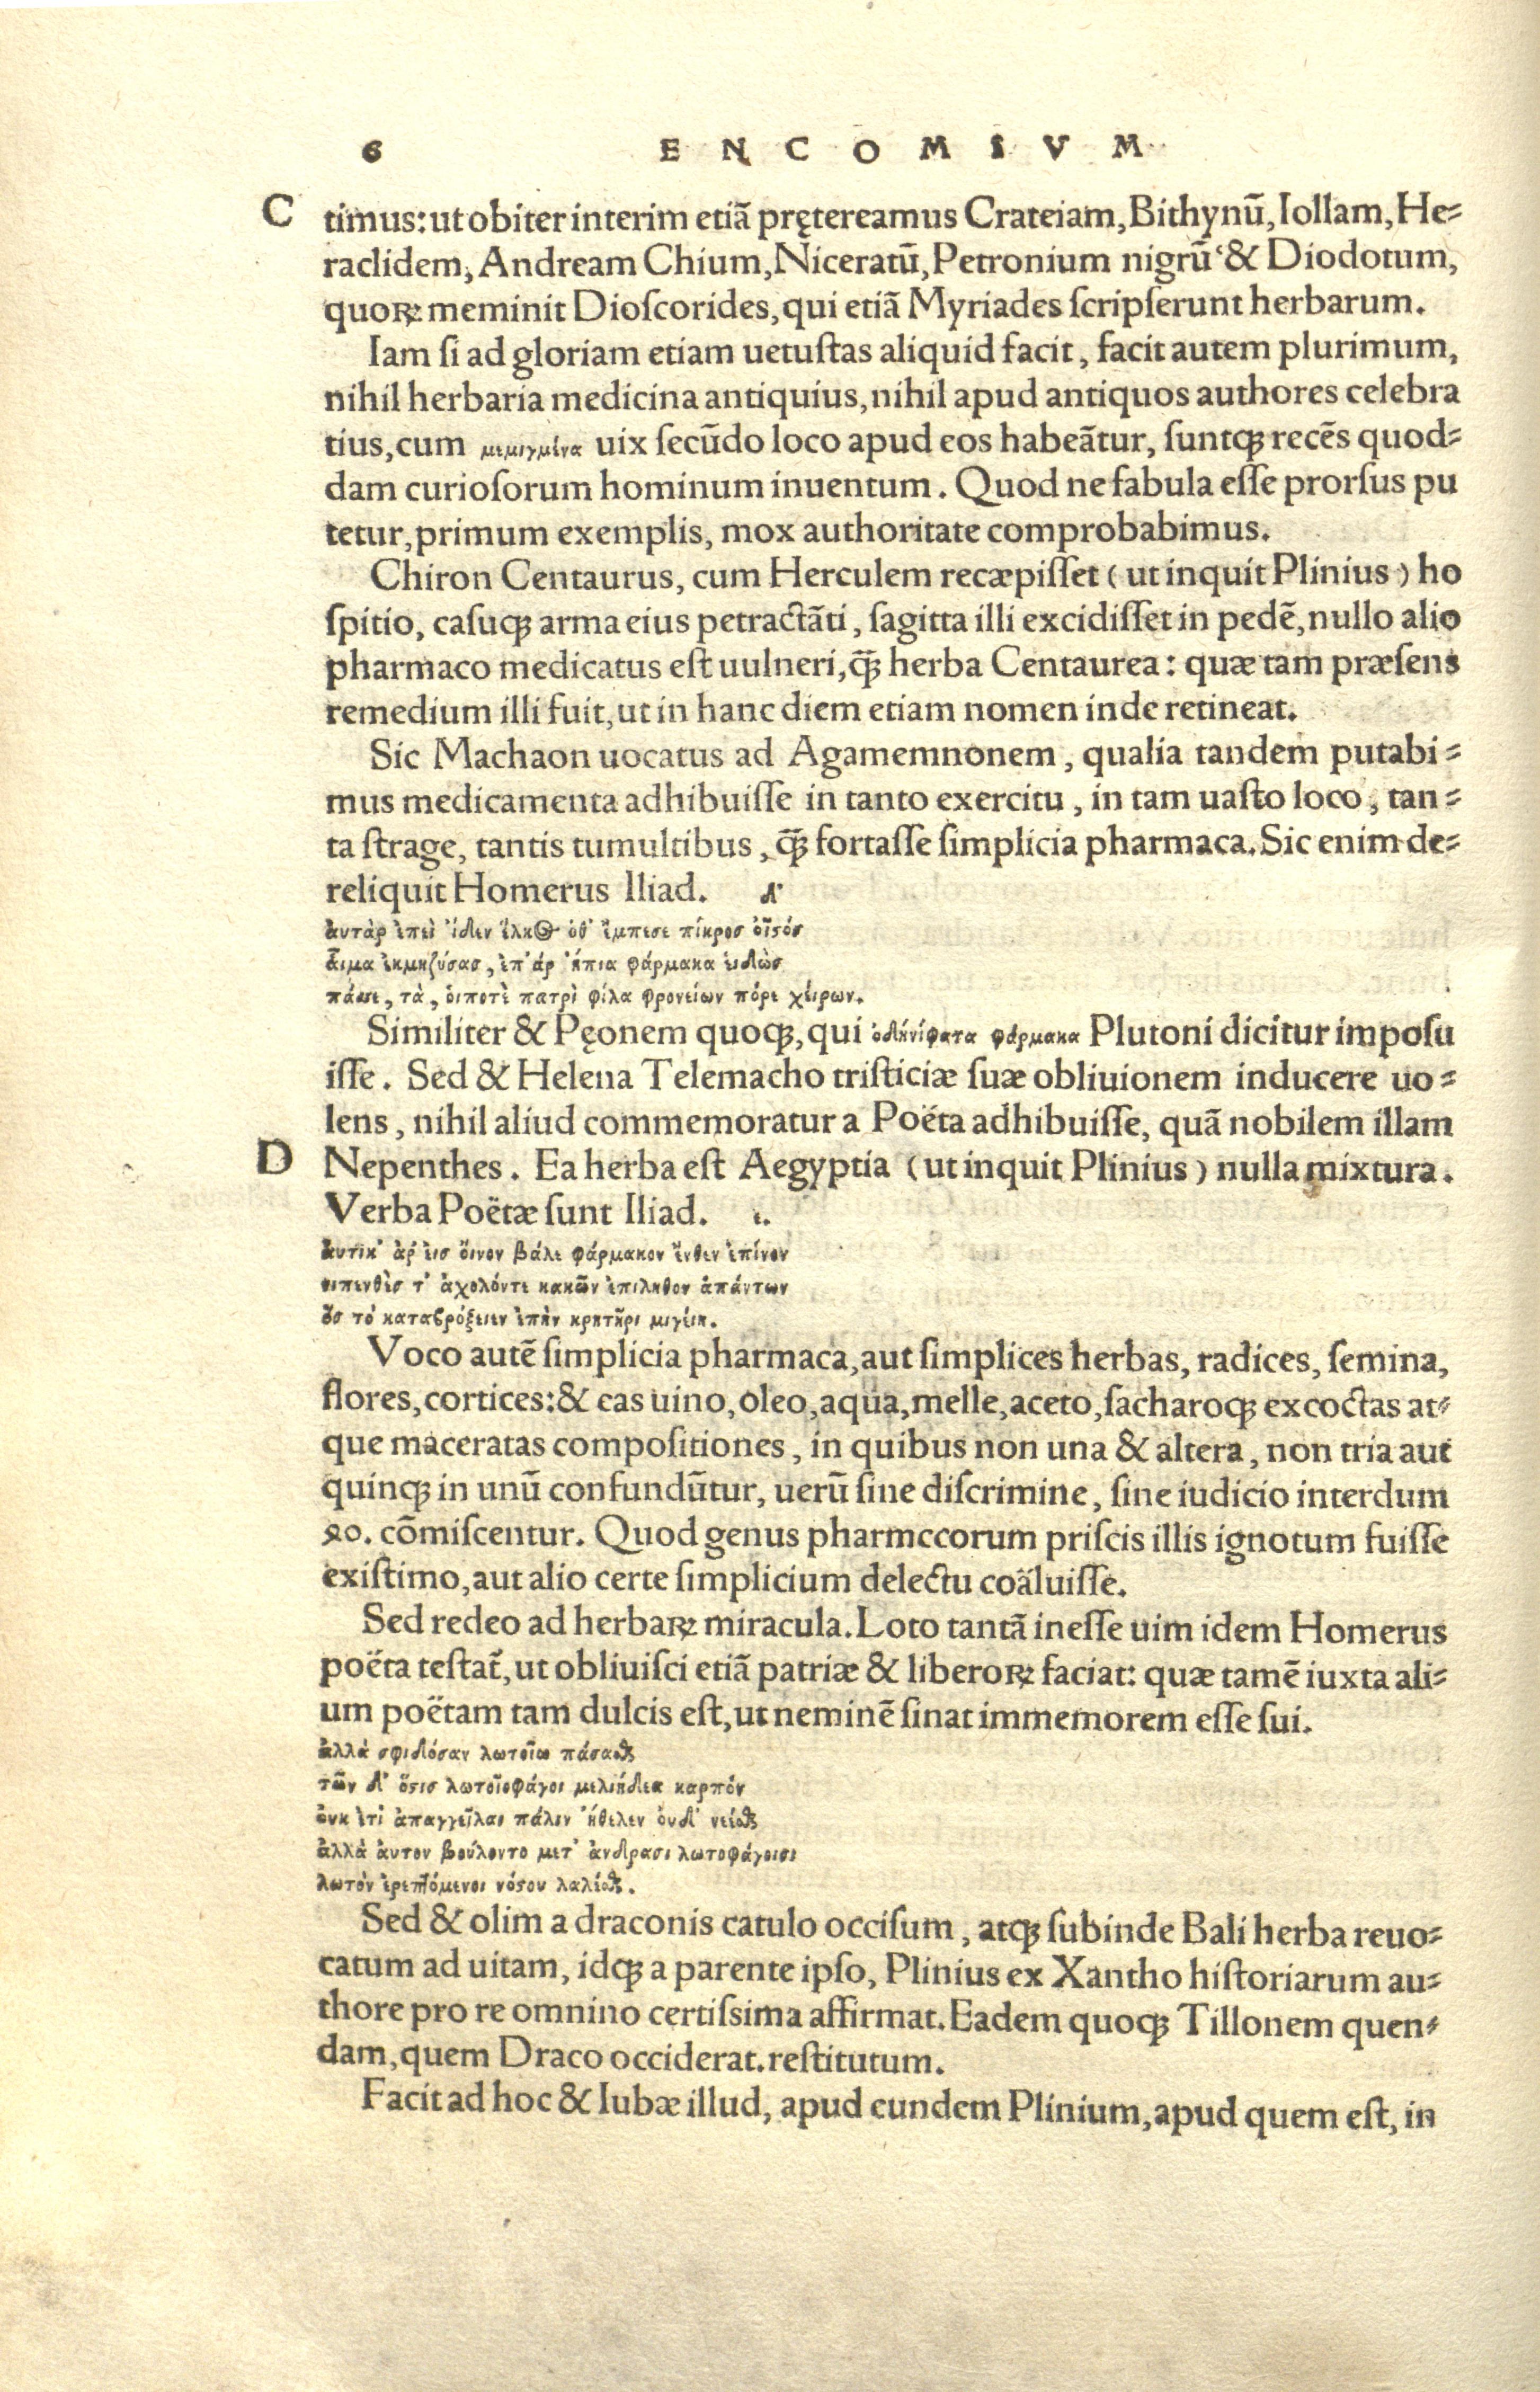 6 ENCOMIVM
C timus: ut obiter interim etiā prętereamus Crateiam, Bithynū, Iollam, He⸗
raclidem, Andream Chium, Niceratū, Petronium nigrū & Diodotum,
quoꝝ meminit Dioscorides, qui etiā Myriades scripserunt herbarum.
Iam si ad gloriam etiam uetustas aliquid facit, facit autem plurimum,
nihil herbaria medicina antiquius, nihil apud antiquos authores celebra
tius, cum μεμιγμένα uix secūdo loco apud eos habeātur, suntq́ꝫ recēs quod⸗
dam curiosorum hominum inuentum. Quod ne fabula esse prorsus pu
tetur, primum exemplis, mox authoritate comprobabimus.
Chiron Centaurus, cum Herculem recæpisset (ut inquit Plinius) ho
spitio, casuqꝫ arma eius petractāti, sagitta illi excidisset in pedē, nullo alio
pharmaco medicatus est uulneri, q̄ꝫ herba Centaurea: quæ tam præsens
remedium illi fuit, ut in hanc diem etiam nomen inde retineat.
Sic Machaon uocatus ad Agamemnonem, qualia tandem putabi⸗
mus medicamenta adhibuisse in tanto exercitu, in tam uasto loco, tan⸗
ta strage, tantis tumultibus, q̄ꝫ fortasse simplicia pharmaca. Sic enim de⸗
reliquit Homerus Iliad. δ'
ἀυτὰρ ἐπεὶ ἴδεν ἕλκος ὁθ' ἔμπεσε πίκροσ ὀϊστόσ
ἇιμα ἐκμηζύσας, ἐπ' ἀρ ἤπια φάρμακα ἐιδὼσ
πάσσε, τὰ, ὁιποτὲ πατρὶ φίλα φρονείων πόρε χείρων.
Similiter & Pęonem quoqꝫ, qui ὀδήνίφατα φάρμακα Plutoni dicitur imposu
isse. Sed & Helena Telemacho tristiciæ suæ obliuionem inducere uo⸗
lens, nihil aliud commemoratur a Poëta adhibuisse, quā nobilem illam
D Nepenthes. Ea herba est Aegyptia (ut inquit Plinius) nulla mixtura.
Verba Poëtæ sunt Iliad. ι.
ἀυτίκ' ἀρ' ἐισ ὄινον βάλε φάρμακον ἔνθεν ἐπίνον
νιπενθὲσ τ' ἀχολόντε κακῶν ἐπιληθον ἀπάντων
ὃσ τὸ καταβρόξειεν ἐπὴν κρητῆρι μιγείη.
Voco autē simplicia pharmaca, aut simplices herbas, radices, semina,
flores, cortices: & eas uino, oleo, aqua, melle, aceto, sacharoqꝫ excoctas at⸗
que maceratas compositiones, in quibus non una & altera, non tria aut
quinqꝫ in unū confundūtur, uerū sine discrimine, sine iudicio interdum
80. cōmiscentur. Quod genus pharmccorum priscis illis ignotum fuisse
existimo, aut alio certe simplicium delectu coäluisse.
Sed redeo ad herbaꝝ miracula. Loto tantā inesse uim idem Homerus
poëta testat̄, ut obliuisci etiā patriæ & liberoꝝ faciat: quæ tamē iuxta ali⸗
um poëtam tam dulcis est, ut neminē sinat immemorem esse sui.
ἀλλὰ σφιδόσαν λωτοῖω πάσαϑς
τῶν δ' ὅστισ λωτοῖοφάγοι μελιήδεα καρπόν
ὀυκ ἐτὶ ἀπαγγεῖλαι πάλιν ἤθελεν ὀυδ' νείσθαι
ἀλλὰ ἀυτον βούλοντο μετ' ἀνδρασι λωτοφάγοισι
λωτὸν ἐρεπτόμενοι νόστου λαλέσθαι.
Sed & olim a draconis catulo occisum, atqꝫ subinde Bali herba reuo⸗
catum ad uitam, idqꝫ a parente ipso, Plinius ex Xantho historiarum au⸗
thore pro re omnino certissima affirmat. Eadem quoqꝫ Tillonem quen⸗
dam, quem Draco occiderat. restitutum.
Facit ad hoc & Iubæ illud, apud eundem Plinium, apud quem est, in